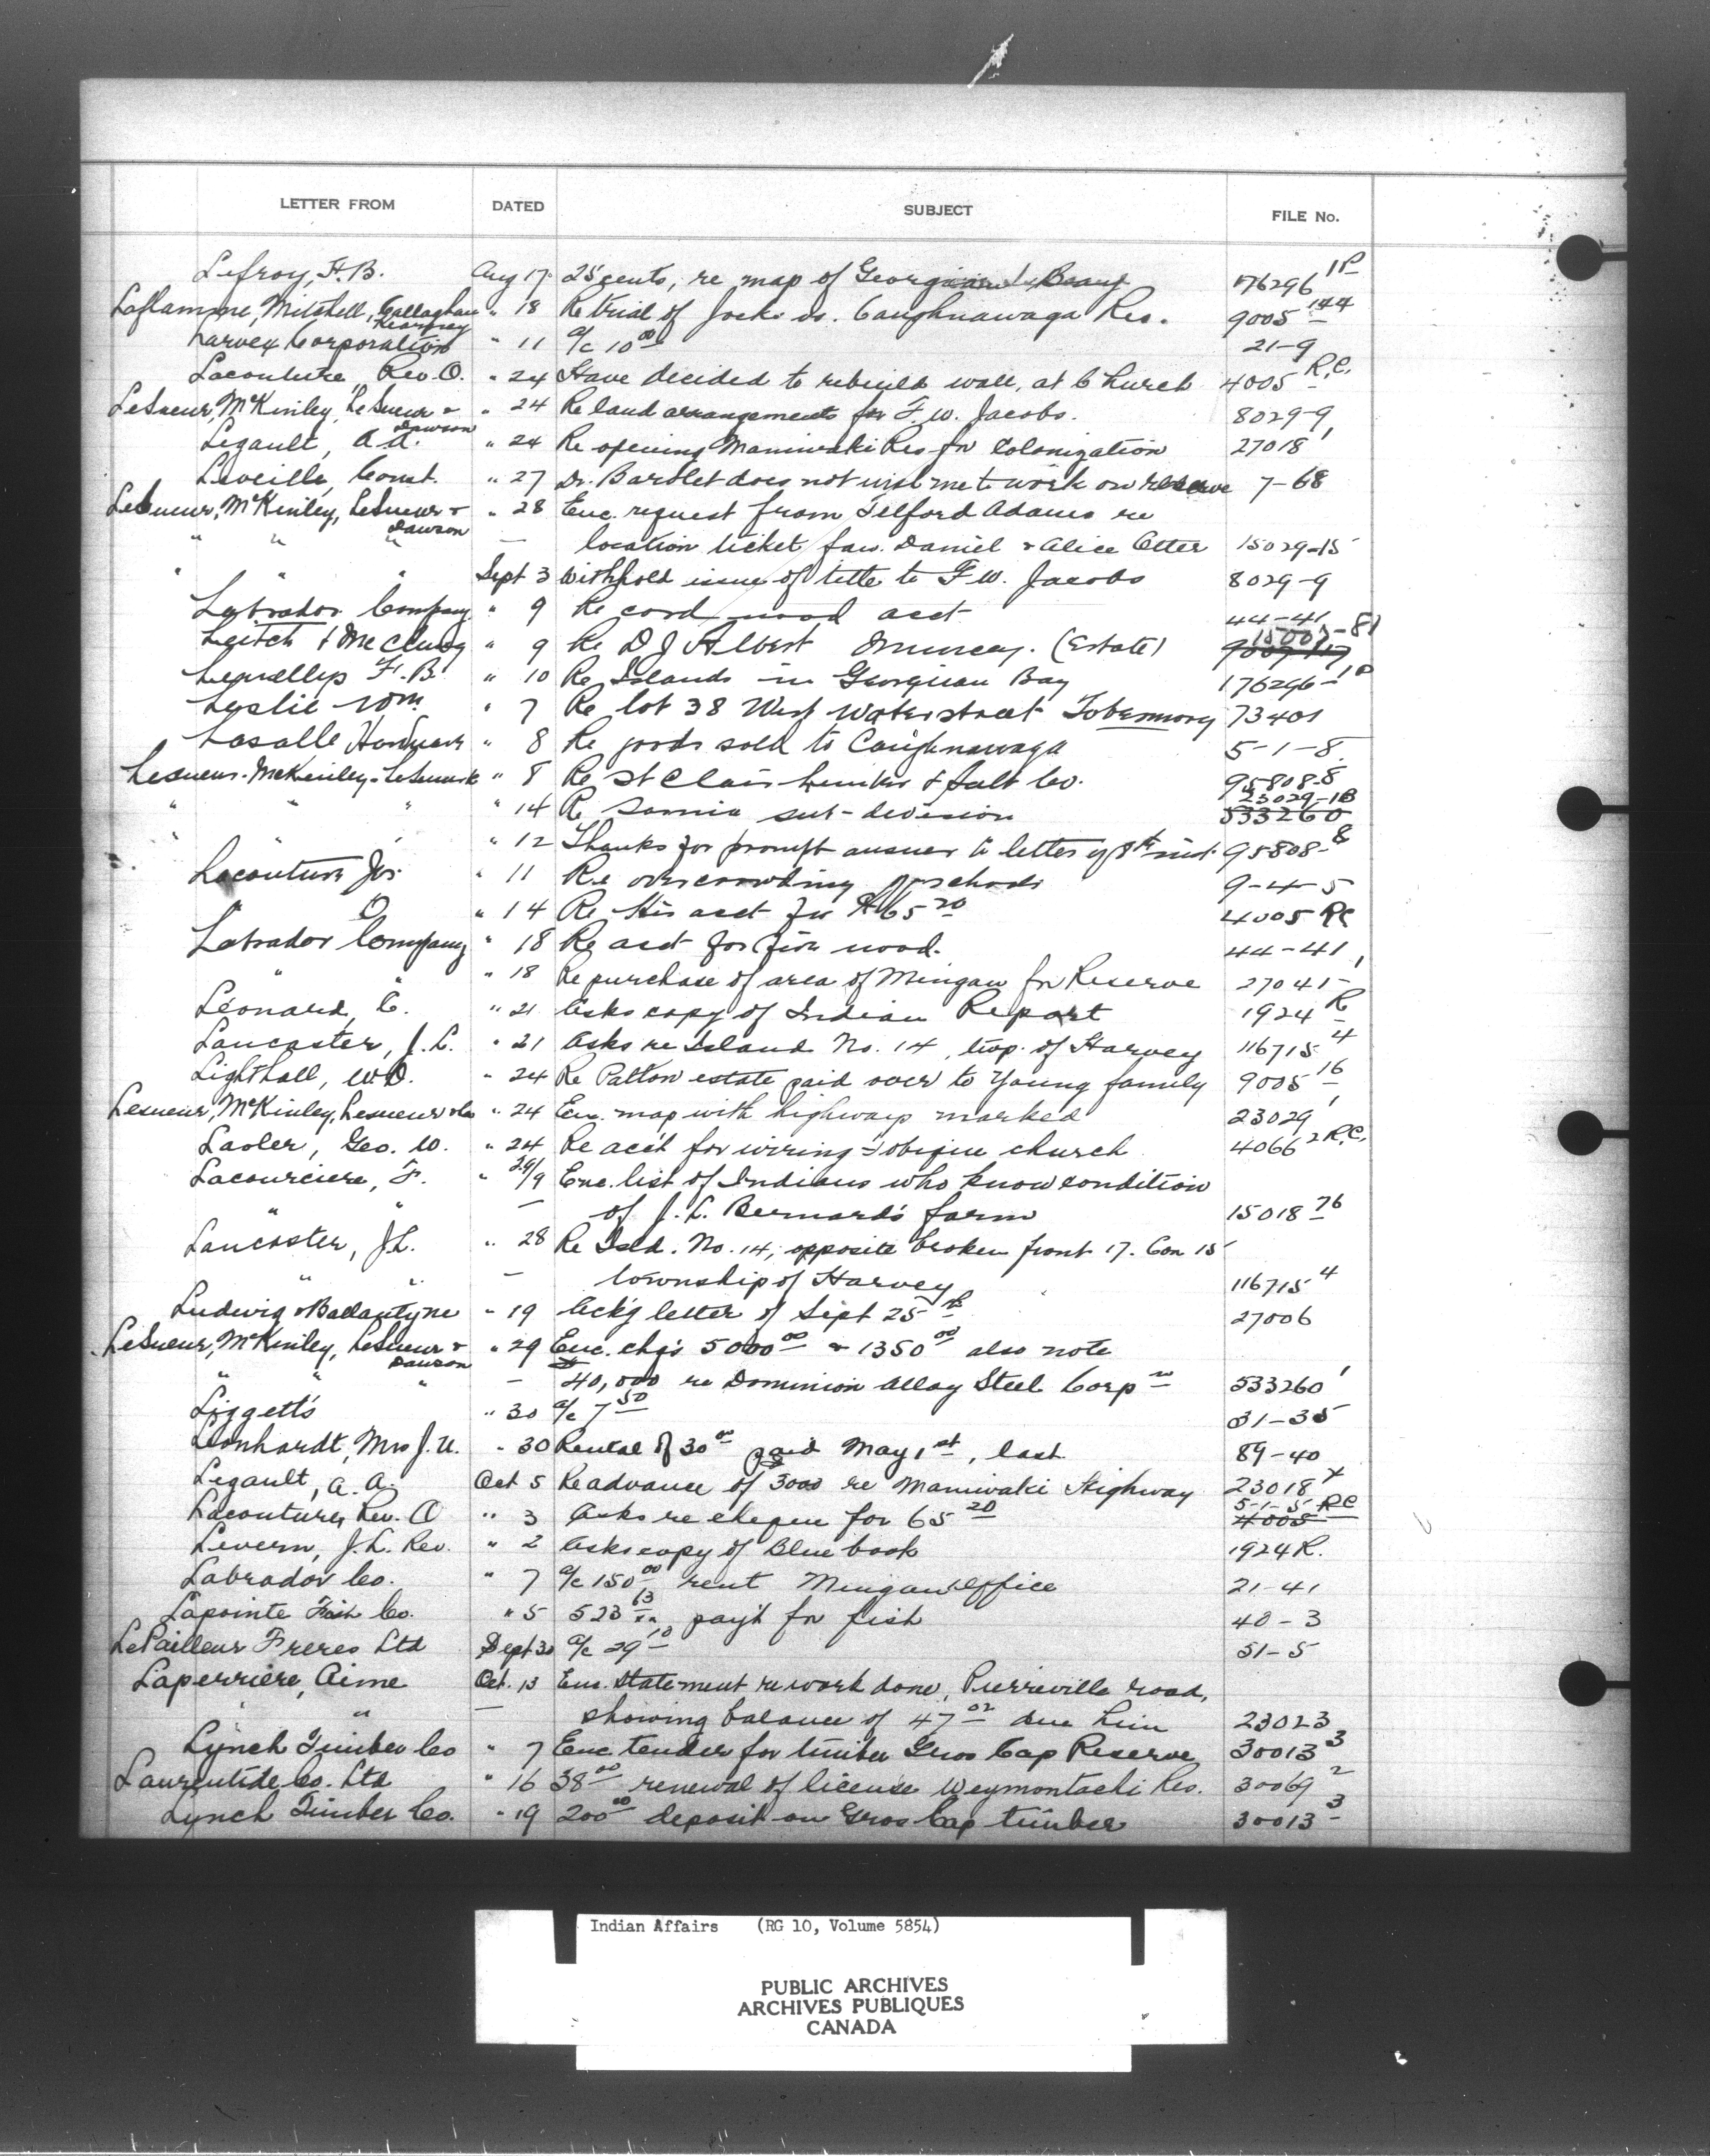 LETTER FROM DATED SUBJECT FILE No.
Lefroy, F.B. Aug 17 25 cents, re map of Georgian Bay 176296 1P
Laflamme, Mitchell, Gallaghan " 18 Re trial of Jocks vs. Caughnawaga Res. 9005-144
Kearney
Larvex Corporation " 11 a/c 10 00 21-9
Lacouture, Rev. O. " 24 Have decided to rebuild wall, at Church 4005 R.C.
LeSueur, McKinley, LeSueur & " 24 Re land arrangements for F.W. Jacobs. 8029-9
Dawson
Legault, A.A. " 24 Re opening Maniwaki Res for Colonization 27018 1
Leveille, Const. " 27 Dr. Bartlet does not wish me to work on reserve 7-68
LeSueur, McKinley, LeSueur & " 28 Enc. request from Telford Adams re
Dawson
" " " — location ticket fav. Daniel & Alice Otter 15029-15
" " " Sept 3 Withhold issue of title to F.W. Jacobs 8029-9
Labrador Company " 9 Re cord wood acct 44-41
Leitch & McClurg " 9 Re D J Albert Muncey. (Estate) 9007-117 15007-81
F.B. " 10 Re Islands in Georgian Bay 176296-1P
Leslie Wm " 7 Re lot 38 West Water street Tobermory 73401
Lasalle Hardware " 8 Re goods sold to Caughnawaga 5-1-8
Lesueur-McKinley-LeSueur " 8 Re St Clair Lumber & Salt Co. 95808-8
" " " " 14 Re Sarnia sub-division 23029-1B 533260
" " 12 Thanks for prompt answer to letter of 8th inst. 95808-8
Lacouture Jos. " 11 Re overcrowding of schools 9-4-5
" O " 14 Re His acct for $65 20 4005 RC
Labrador Company " 18 Re acct for fire wood. 44-41
" " " 18 Re purchase of area of Mingan for Reserve 27041-1
Leonard, C. " 21 Asks copy of Indian Report 1924 R
Lancaster, J.L. " 21 Asks re Island No. 14, twp. of Harvey 116715 4
Lighthall, W.D. " 24 Re Patton estate paid over to Young family 9005 16
Lesueur, McKinley, Lesueur & Co " 24 Enc. map with highways marked 23029 1
Lawler, Geo. W. " 24 Re acc't for wiring Tobique church 4066 2 R.C.
Lacourciere, F. " 29/9 Enc. list of Indians who know condition
" — of J.L. Bernard's farm 15018-76
Lancaster, J.L. " 28 Re Isld. No. 14, opposite broken front 17. Con 15
" " — township of Harvey 116715 4
Ludwig & Ballantyne " 19 Ack'g letter of Sept 25th 27006
LeSueur, McKinley, LeSueur & " 29 Enc. chqs 5000 00 & 1350 00 also note
Dawson
" " " — 40,000 re Dominion Alloy Steel Corpn 533260 1
Liggett's " 30 a/c 7 50 31-35
Leonhardt, Mrs J.U. " 30 Rental of 30 00 paid May 1st, last 89-40
Legault, A.A. Oct 5 Re advance of 3000 re Maniwaki Highway 23018 x
Lacouture, Rev. O " 3 Asks re cheque for 65 20 4005 5-1-5 RC
Levern, J.L. Rev. " 2 Asks copy of Blue book 1924 R.
Labrador Co. " 7 a/c 150 00 rent Mingan office 21-41
Lapointe Fish Co. " 5 523 63 pay't for fish 40-3
LePailleur Freres Ltd Sept 30 a/c 29 10 51-5
Laperriere, Aime Oct. 13 Enc. Statement re work done, Pierreville road,
" " — showing balance of 47 02 due him 23023
Lynch Timber Co " 7 Enc tender for timber Gros Cap Reserve 30013 3
Laurentide Co. Ltd " 16 38 00 renewal of license Weymontachi Res. 30069 2
Lynch Timber Co. " 19 200 00 deposit on Gros Cap timber 30013 3
Indian Affairs (RG 10, Volume 5854)
PUBLIC ARCHIVES
ARCHIVES PUBLIQUES
CANADA